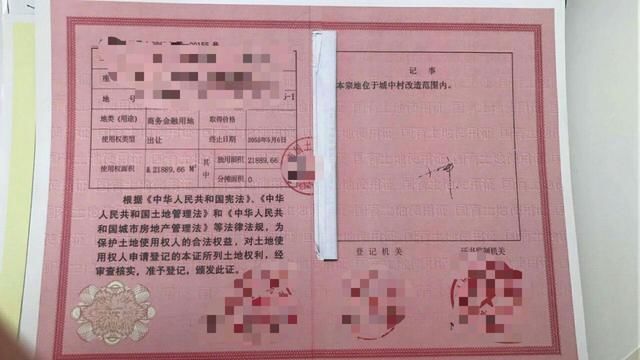 座
地 号
地类（用途） 商务金融用地 取得价格
使用权类型 出让 终止日期 2052年5月6日
使用权面积 21889.66 M² 其中 独用面积 21889.66
分摊面积 0
根据《中华人民共和国宪法》、《中华
人民共和国土地管理法》和《中华人民共
和国城市房地产管理法》等法律法规，为
保护土地使用权人的合法权益，对土地使
用权人申请登记的本证所列土地权利，经
审查核实，准予登记，颁发此证。
记 事
本宗地位于城中村改造范围内。
登 记 机 关
证书监制机关